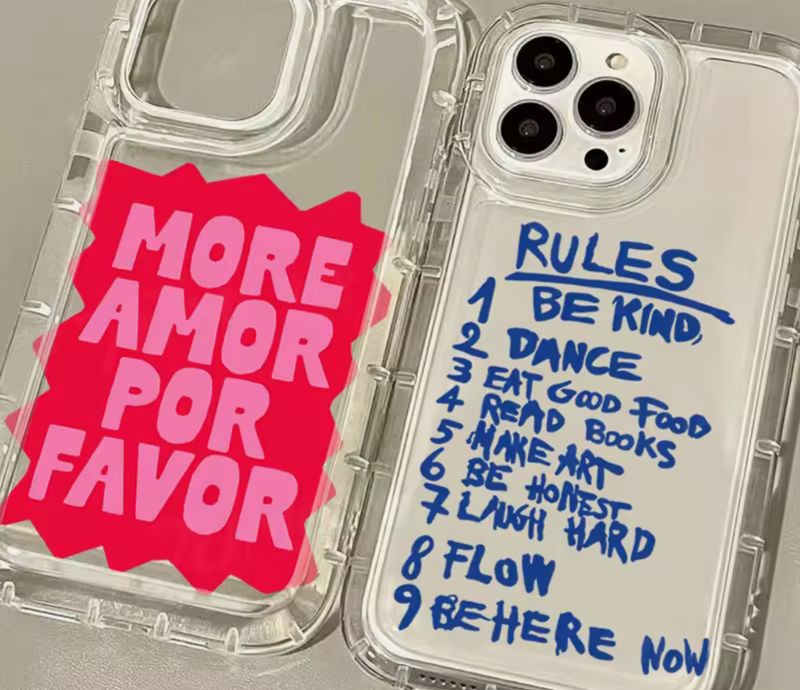 MORE
AMOR
POR
FAVOR
RULES
1 BE KIND,
2 DANCE
3 EAT GOOD FOOD
4 READ BOOKS
5 MAKE ART
6 BE HONEST
7 LAUGH HARD
8 FLOW
9 BE HERE NOW